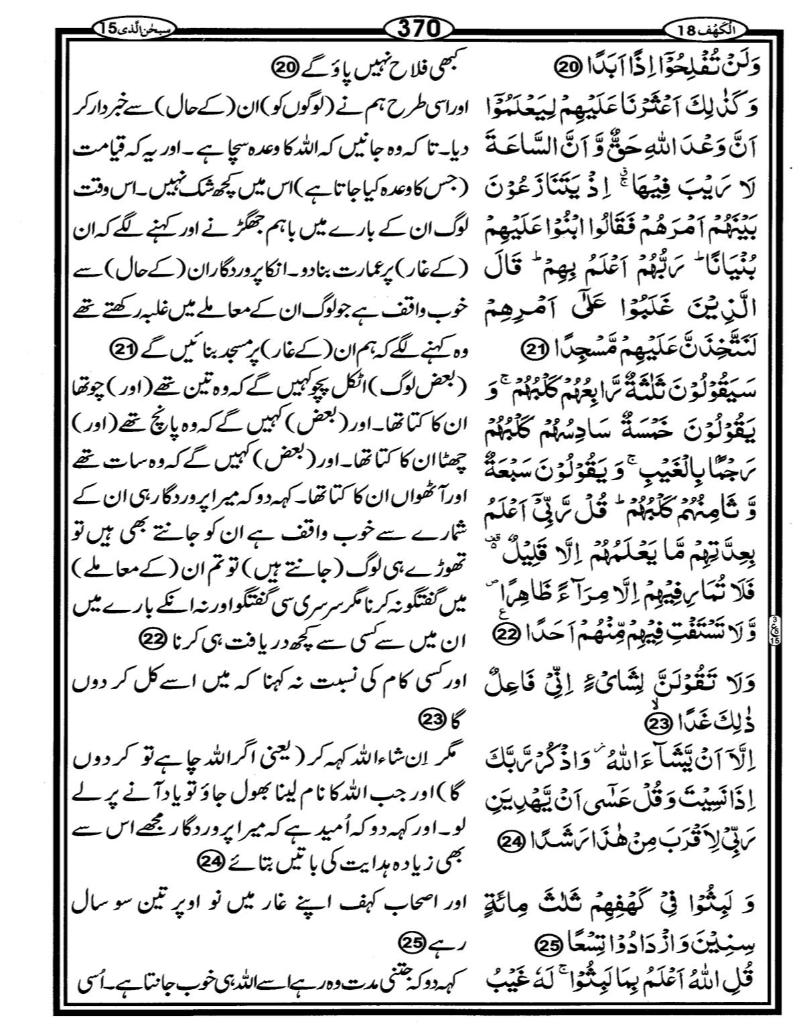 الكهف 18
370
سبحٰن الّذی 15
وَلَنْ تُفْلِحُوْۤا اِذًا اَبَدًا ﴿20﴾
وَكَذٰلِكَ اَعْثَرْنَا عَلَيْهِمْ لِيَعْلَمُوْۤا
اَنَّ وَعْدَ اللّٰهِ حَقٌّ وَّ اَنَّ السَّاعَةَ
لَا رَيْبَ فِيْهَا ۚ اِذْ يَتَنَازَعُوْنَ
بَيْنَهُمْ اَمْرَهُمْ فَقَالُوا ابْنُوْا عَلَيْهِمْ
بُنْيَانًا ؕ رَبُّهُمْ اَعْلَمُ بِهِمْ ؕ قَالَ
الَّذِيْنَ غَلَبُوْا عَلٰۤى اَمْرِهِمْ
لَنَتَّخِذَنَّ عَلَيْهِمْ مَّسْجِدًا ﴿21﴾
سَيَقُوْلُوْنَ ثَلٰثَةٌ رَّابِعُهُمْ كَلْبُهُمْ ۚ وَ
يَقُوْلُوْنَ خَمْسَةٌ سَادِسُهُمْ كَلْبُهُمْ
رَجْمًۢا بِالْغَيْبِ ۚ وَ يَقُوْلُوْنَ سَبْعَةٌ
وَّ ثَامِنُهُمْ كَلْبُهُمْ ؕ قُلْ رَّبِّيْۤ اَعْلَمُ
بِعِدَّتِهِمْ مَّا يَعْلَمُهُمْ اِلَّا قَلِيْلٌ ۫
فَلَا تُمَارِ فِيْهِمْ اِلَّا مِرَآءً ظَاهِرًا ۪
وَّ لَا تَسْتَفْتِ فِيْهِمْ مِّنْهُمْ اَحَدًا ﴿22﴾
وَلَا تَقُوْلَنَّ لِشَايْءٍ اِنِّيْ فَاعِلٌ
ذٰلِكَ غَدًا ﴿23﴾
اِلَّاۤ اَنْ يَّشَآءَ اللّٰهُ ۫ وَاذْكُرْ رَّبَّكَ
اِذَا نَسِيْتَ وَقُلْ عَسٰۤى اَنْ يَّهْدِيَنِ
رَبِّيْ لِاَقْرَبَ مِنْ هٰذَا رَشَدًا ﴿24﴾
وَ لَبِثُوْا فِيْ كَهْفِهِمْ ثَلٰثَ مِائَةٍ
سِنِيْنَ وَازْدَادُوْا تِسْعًا ﴿25﴾
قُلِ اللّٰهُ اَعْلَمُ بِمَا لَبِثُوْا ۚ لَهٗ غَيْبُ
کبھی فلاح نہیں پاؤ گے ﴿20﴾
اور اسی طرح ہم نے (لوگوں کو) ان (کے حال) سے خبردار کر
دیا۔ تاکہ وہ جانیں کہ اللہ کا وعدہ سچا ہے۔ اور یہ کہ قیامت
(جس کا وعدہ کیا جاتا ہے) اس میں کچھ شک نہیں۔ اس وقت
لوگ ان کے بارے میں باہم جھگڑنے اور کہنے لگے کہ ان
(کے غار) پر عمارت بنا دو۔ انکا پروردگار ان (کے حال) سے
خوب واقف ہے جو لوگ ان کے معاملے میں غلبہ رکھتے تھے
وہ کہنے لگے کہ ہم ان (کے غار) پر مسجد بنائیں گے ﴿21﴾
(بعض لوگ) اٹکل پچو کہیں گے کہ وہ تین تھے (اور) چوتھا
ان کا کتا تھا۔ اور (بعض) کہیں گے کہ وہ پانچ تھے (اور)
چھٹا ان کا کتا تھا۔ اور (بعض) کہیں گے کہ وہ سات تھے
اور آٹھواں ان کا کتا تھا۔ کہہ دو کہ میرا پروردگار ہی ان کے
شمار سے خوب واقف ہے ان کو جانتے بھی ہیں تو
تھوڑے ہی لوگ (جانتے ہیں) تو تم ان (کے معاملے)
میں گفتگو نہ کرنا مگر سرسری سی گفتگو اور نہ انکے بارے میں
ان میں سے کسی سے کچھ دریافت ہی کرنا ﴿22﴾
اور کسی کام کی نسبت نہ کہنا کہ میں اسے کل کر دوں
گا ﴿23﴾
مگر اِن شاء اللہ کہہ کر (یعنی اگر اللہ چاہے تو کر دوں
گا) اور جب اللہ کا نام لینا بھول جاؤ تو یاد آنے پر لے
لو۔ اور کہہ دو کہ اُمید ہے کہ میرا پروردگار مجھے اس سے
بھی زیادہ ہدایت کی باتیں بتائے ﴿24﴾
اور اصحاب کہف اپنے غار میں نو اوپر تین سو سال
رہے ﴿25﴾
کہہ دو کہ جتنی مدت وہ رہے اسے اللہ ہی خوب جانتا ہے۔ اُسی